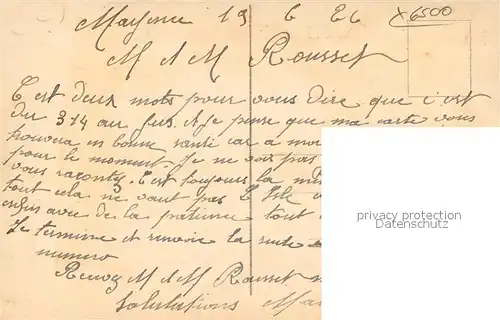 Mayence 19 6 26
x6500
M & M Rousset
C'est deux mots pour vous dire que c'est
du 374 au jus. Et je pense que ma carte vous
trouvera en bonne santé car a moi
pour le moment. Je ne vois pas
vous raconter. C'est toujours la
tout cela ne vaut pas L'Isle
enfin avec de la patience tout
Je termine et renvoie la suite
numero
Recevez M & M Rousset
Salutations
privacy protection
Datenschutz